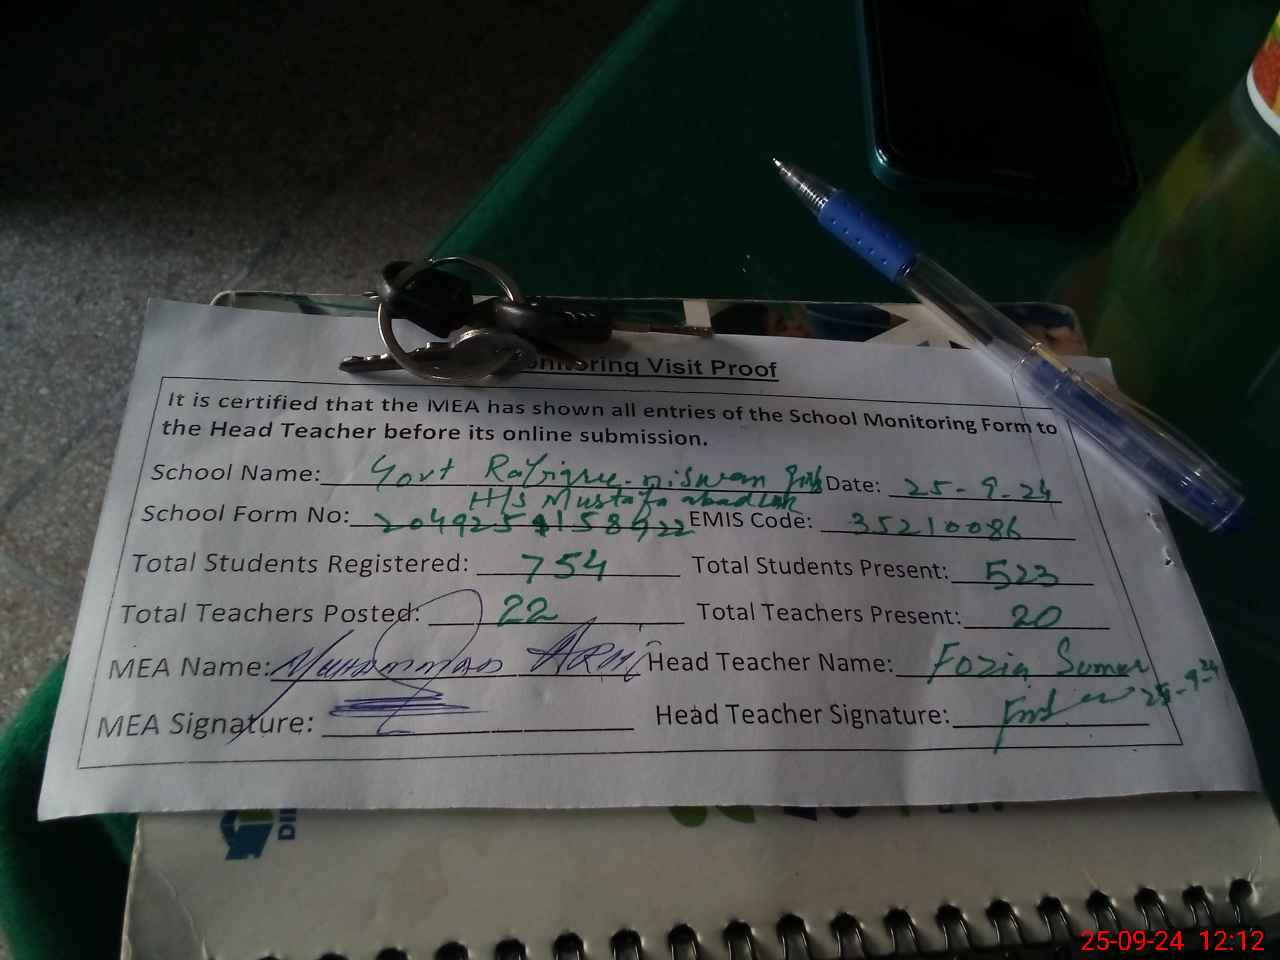 Monitoring Visit Proof
It is certified that the MEA has shown all entries of the School Monitoring Form to
the Head Teacher before its online submission.
School Name: Govt Rafique-niswan girls Date: 25-9-24
H/S Mustafa abad Lhr
School Form No: EMIS Code: 35210086
Total Students Registered: 754 Total Students Present: 523
Total Teachers Posted: 22 Total Teachers Present: 20
MEA Name: Muhammad Head Teacher Name: Fozia
25-9-24
MEA Signature: Head Teacher Signature:
25-09-24 12:12